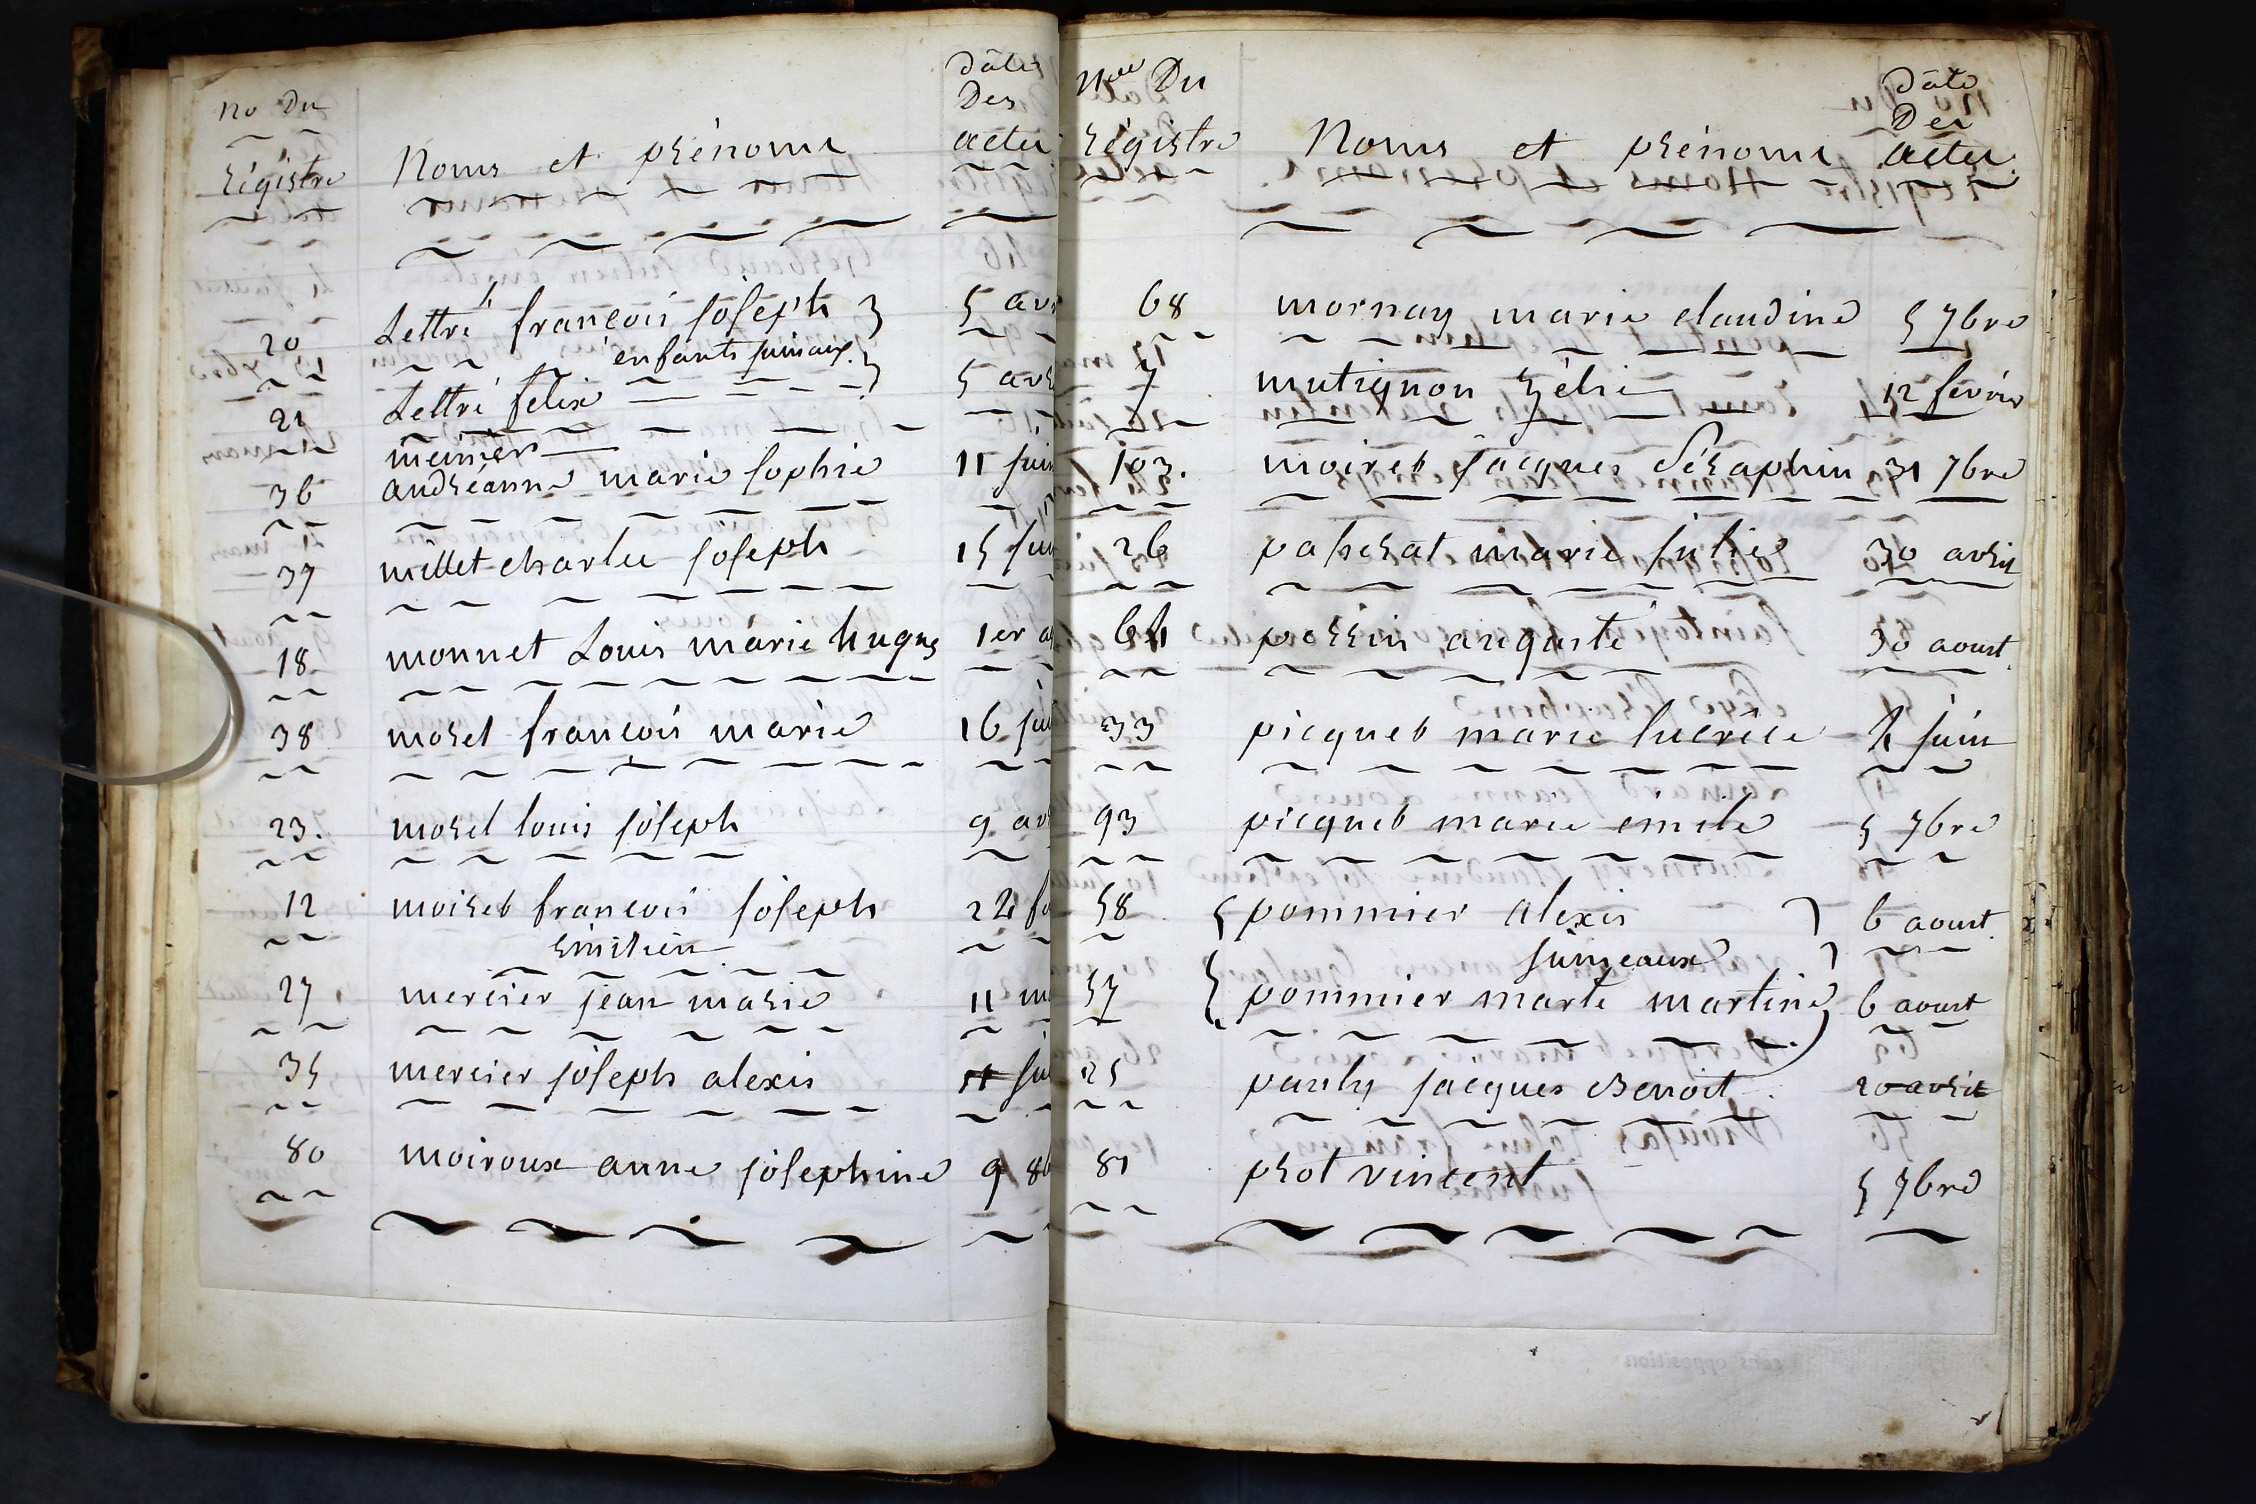 No Du
régistre
Noms et prénoms
Dâtes
Des
actes
20 Lettré françois joseph 5 avr
enfants jumaux
21 Lettré felix 5 avr
meinier
36 andréanne marie sophie 11 juin
37 millet charles joseph 15 jui
18 monnet Louis marie hugues 1er a
38 morel françois marie 16 jui
23. morel louis joseph 9 avr
12 moiret françois joseph 24 fé
27 mercier jean marie 11 ma
35 mercier joseph alexis 11 jui
80 moiroux anne josephine 9 8b
Nos Du
régistre
Noms et prénoms
Dâte
Des
actes
68 mornay marie claudine 5 7bre
7 mutignon zélie 12 février
103. moiret jacques séraphin 31 7bre
26 pascrat marie julie 30 avril
64 perrin auguste 30 aoust.
33 picquet marie lucrèce 4 juin
93 picquet marie émile 5 7bre
58 pommier alexis 6 aoust.
jumeaux
57 pommier marte martine 6 aoust
25 pauly jacques Benoit 20 avril
81 prot vincent 5 7bre